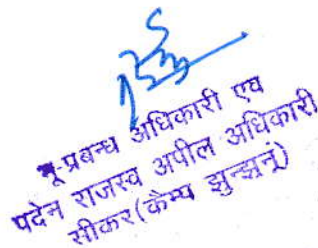 भू प्रबन्ध अधिकारी एव
पदेन राजस्व अपील अधिकारी
सीकर (कैम्प झुन्झुनूं)